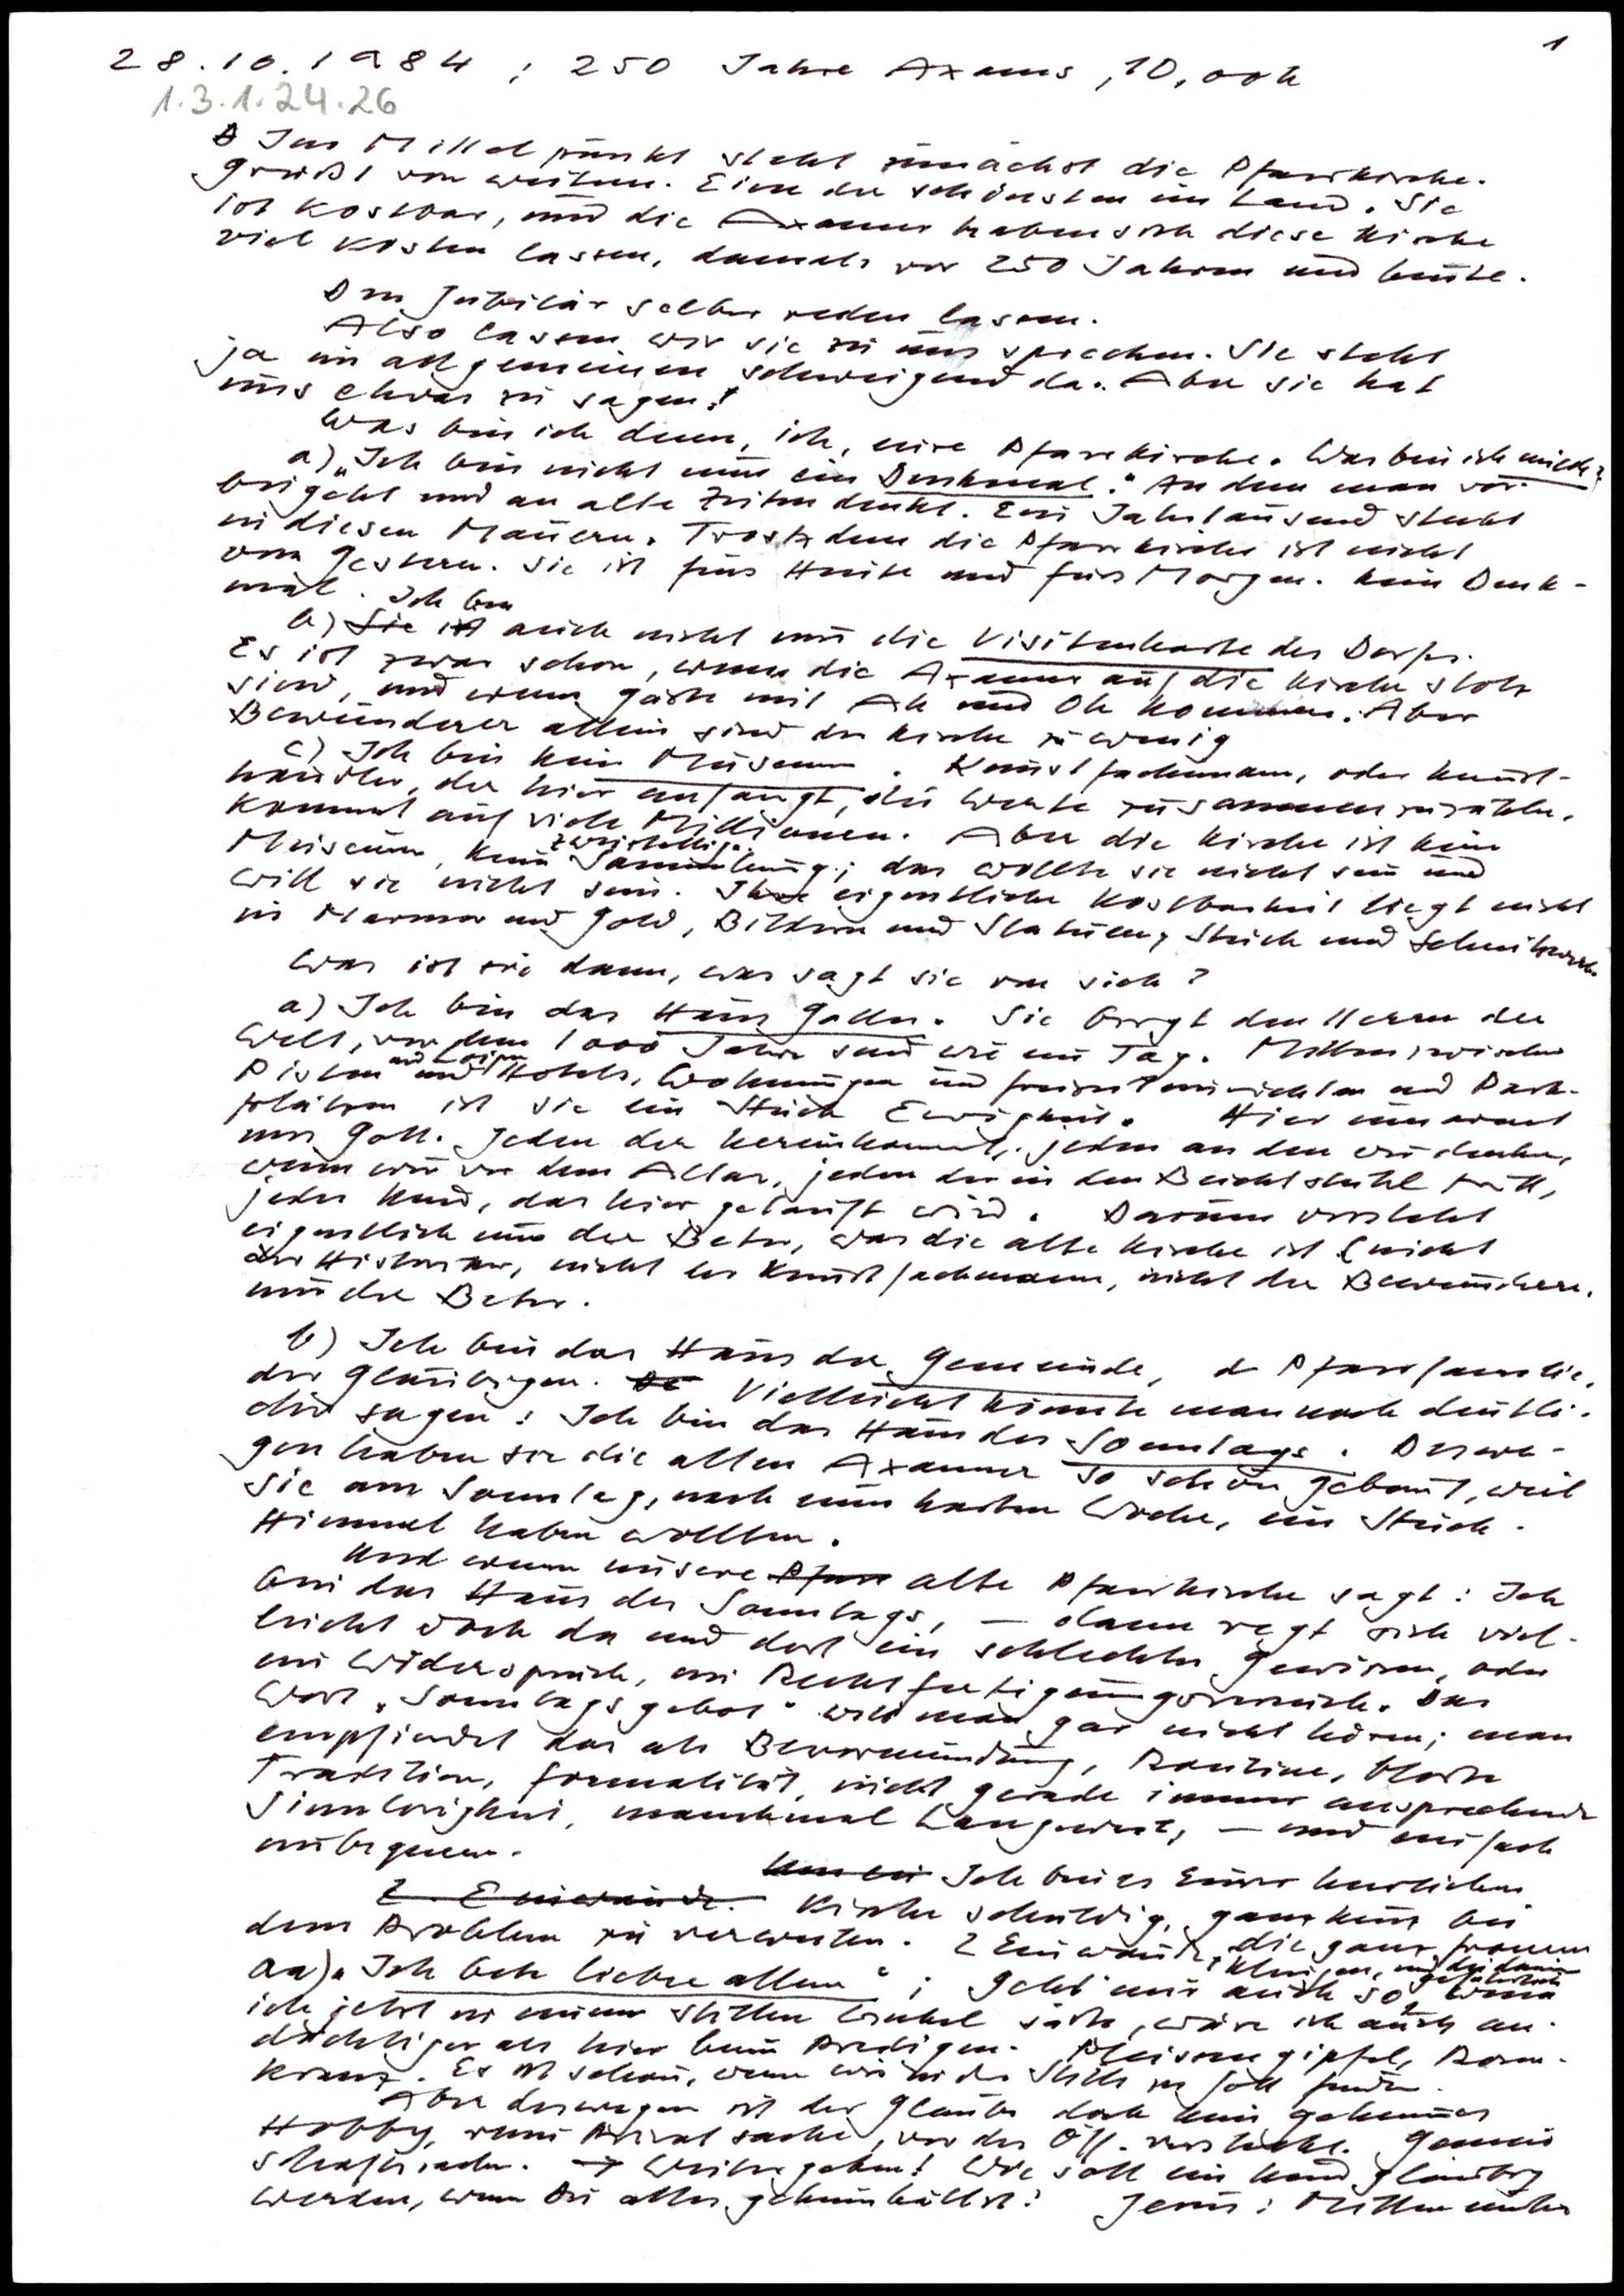 1
28.10.1984 ; 250 Jahre Axams, 10,00h
1.3.1.24.26
Im Mittelpunkt steht zunächst die Pfarrkirche.
Grüßt von weitem. Eine der schönsten im Land. Sie
ist kostbar, und die Axamer haben sich diese Kirche
viel kosten lassen, damals vor 250 Jahren und heute.
Den Jubilar selber reden lassen.
Also lassen wir sie zu uns sprechen. Sie steht
ja im allgemeinen schweigend da. Aber sie hat
uns etwas zu sagen!
Was bin ich denn, ich, eure Pfarrkirche. Was bin ich nicht?
a) „Ich bin nicht nur ein Denkmal." An dem man vor-
beigeht und an alte Zeiten denkt. Ein Jahrtausend steckt
in diesen Mauern. Trotzdem die Pfarrkirche ist nicht
von Gestern. Sie ist fürs Heute und fürs Morgen. Kein Denk-
mal.
Ich bin
b) Sie ist auch nicht nur die Visitenkarte des Dorfes.
Es ist zwar schön, wenn die Axamer auf die Kirche stolz
sind, und wenn Gäste mit Ah und Oh kommen. Aber
Bewunderer allein sind der Kirche zu wenig
c) Ich bin kein Museum. Kunstfachmann, oder Kunst-
händler, der hier anfängt, die Werte zusammenzuzählen,
kommt auf viele Millionen. Aber die Kirche ist kein
zweistellige
Museum, keine Sammlung; das wollte sie nicht sein und
will sie nicht sein. Ihre eigentliche Kostbarkeit liegt nicht
in Marmor und Gold, Bildern und Statuen, Stuck und Schnitzwerk
Was ist sie dann, was sagt sie von sich?
a) Ich bin das Haus Gottes. Sie birgt den Herrn der
Welt, vor dem 1000 Jahre sind wie ein Tag. Mitten zwischen
und Loipen
Pisten und Hotels, Wohnungen und Freizeit und Park-
plätzen ist sie ein Stück Ewigkeit. Hier umarmt
uns Gott. Jeden der hereinkommt, jeden an den wir denken,
wenn wir vor dem Altar, jeden der in den Beichtstuhl tritt,
jedes Kind, das hier getauft wird. Darum versteht
eigentlich nur der Beter, was die alte Kirche ist (nicht
der Historiker, nicht der Kunstfachmann, nicht der Bewunderer,
nur der Beter.
b) Ich bin das Haus der Gemeinde, d Pfarrfamilie,
der Gläubigen. Vielleicht könnte man noch deutli-
cher sagen: Ich bin das Haus des Sonntags. Deswe-
gen haben sie die alten Axamer so schön gebaut, weil
sie am Sonntag, nach einer harten Woche, ein Stück
Himmel haben wollten.
Und wenn unsere Pfarr alte Pfarrkirche sagt: Ich
bin das Haus des Sonntags, – dann regt sich viel-
leicht doch da und dort ein schlechtes Gewissen, oder
ein Widerspruch, ein Rechtfertigungsversuch. Das
Wort „Sonntagsgebot" will man gar nicht hören; man
empfindet das als Bevormundung, Routine, bloße
Tradition, Formalität, nicht gerade immer ansprechende
Sinnlosigkeit, manchmal Langeweile, – und einfach
unbequem.
Ich bin es Eurer herrlichen
2 Einwände. Kirche schuldig, ganz kurz bei
dem Problem zu verweilen. 2 Einwände, die ganz fromm
klingen, und
gefährlich
aa) „Ich bete lieber allein"; Geht mir auch so, wenn
ich jetzt in einem stillen Winkel säße, wäre ich auch an-
dächtiger als hier beim Predigen. gipfel, Rosen-
kranz. Es ist schön, wenn wir in der Stille zu Gott finden.
Aber deswegen ist der Glaube doch kein geheimes
Hobby, reine Privatsache, vor der Öff. versteckt. Gemein
schaft. → Weitergeben! Wie soll ein Kind gläubig
werden, wenn Du alles geheimhältst? Jesus: Mitten unter